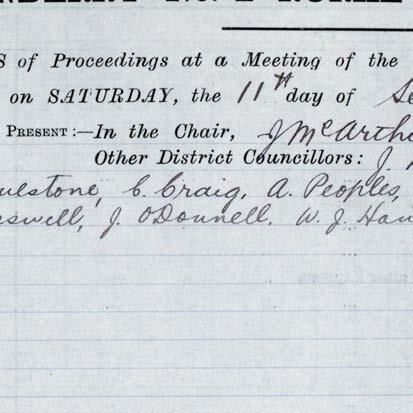 NDERRY No. 2 RURAL
S of Proceedings at a Meeting of the
on SATURDAY, the 11th day of Se
PRESENT:—In the Chair, J McArth
Other District Councillors: J.
C. Craig, A. Peoples,
J. O'Donnell, W. J. Ham